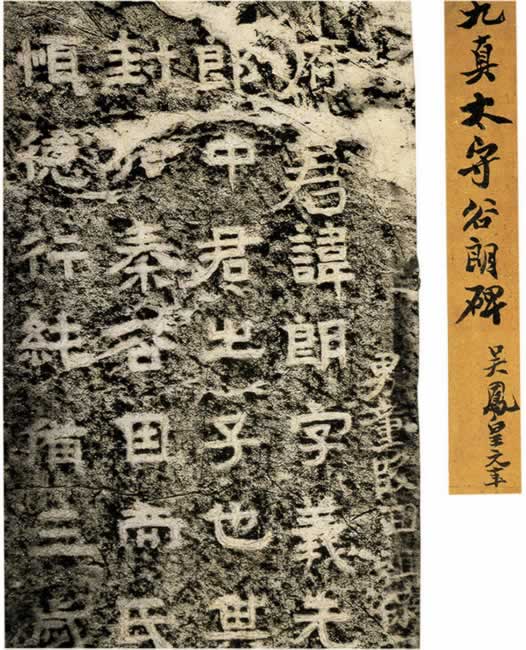 九真太守谷朗碑
吳鳳皇元年
男
府君諱朗字義先
郎中君之子也世
封秦谷因而氏
慎德行純三歲